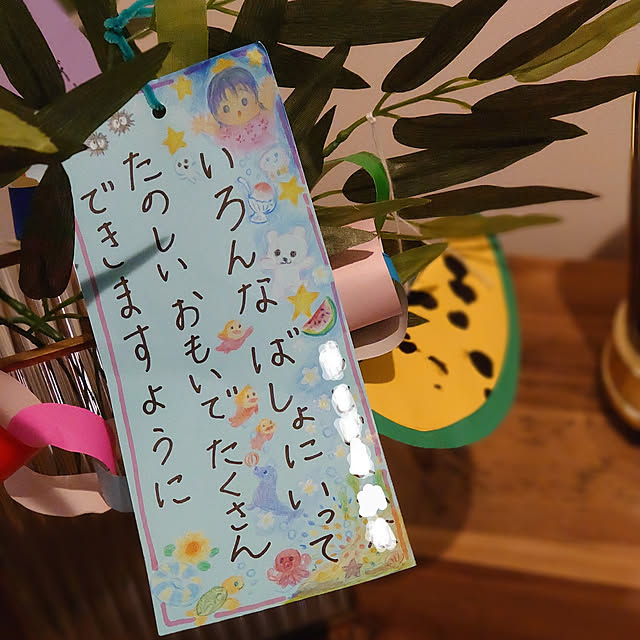 いろんな ばしょに いって
たのしい おもいで たくさん
できますように